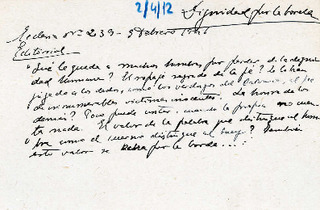 2/4/12 Dignidad por la borda
Ecclesia nº 239 - 9 Febrero 1946
Editorial -
"Qué le queda a muchos hombres por perder, de la digni-
dad humana? El ropaje sagrado de la fe? Lo han
jugado a los dados, como los verdugos del Calvario, el
de innumerables víctimas inocentes. La honra de los
demás? Poco puede
ta nada. El valor de la palabra que distingue al hom
bre como el cuerno distingue al buey? También
este valor se echa por la borda...."